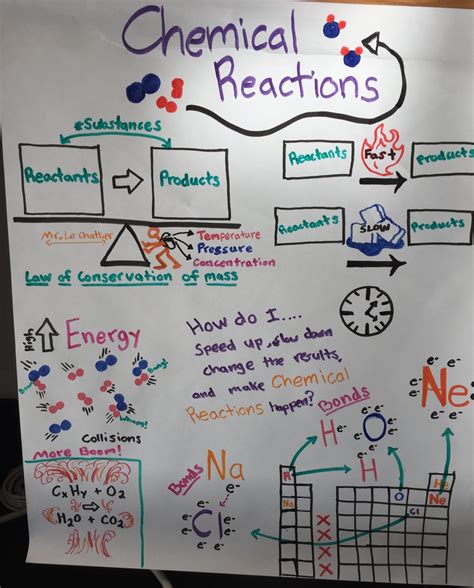 Chemical
Reactions
*Substances
Reactants
Products
Reactants
Fast
Products
Reactants
SLOW
Products
Mr. Le Chatlier
Temperature
Pressure
Concentration
Law of Conservation of mass
High
Energy
Collisions
How do I....
Speed up, slow down
change the results,
and make Chemical
Reactions happen?
Bonds
e- e-
e- Ne e-
e- e-
e- e-
H O
H
More Boom!
CxHy + O2
H2O + CO2
Bonds
Na
e-
e- e-
e- Cl e-
e- e-
e- e-
H
He
Na
O
Ne
Cl
X
X
X
X